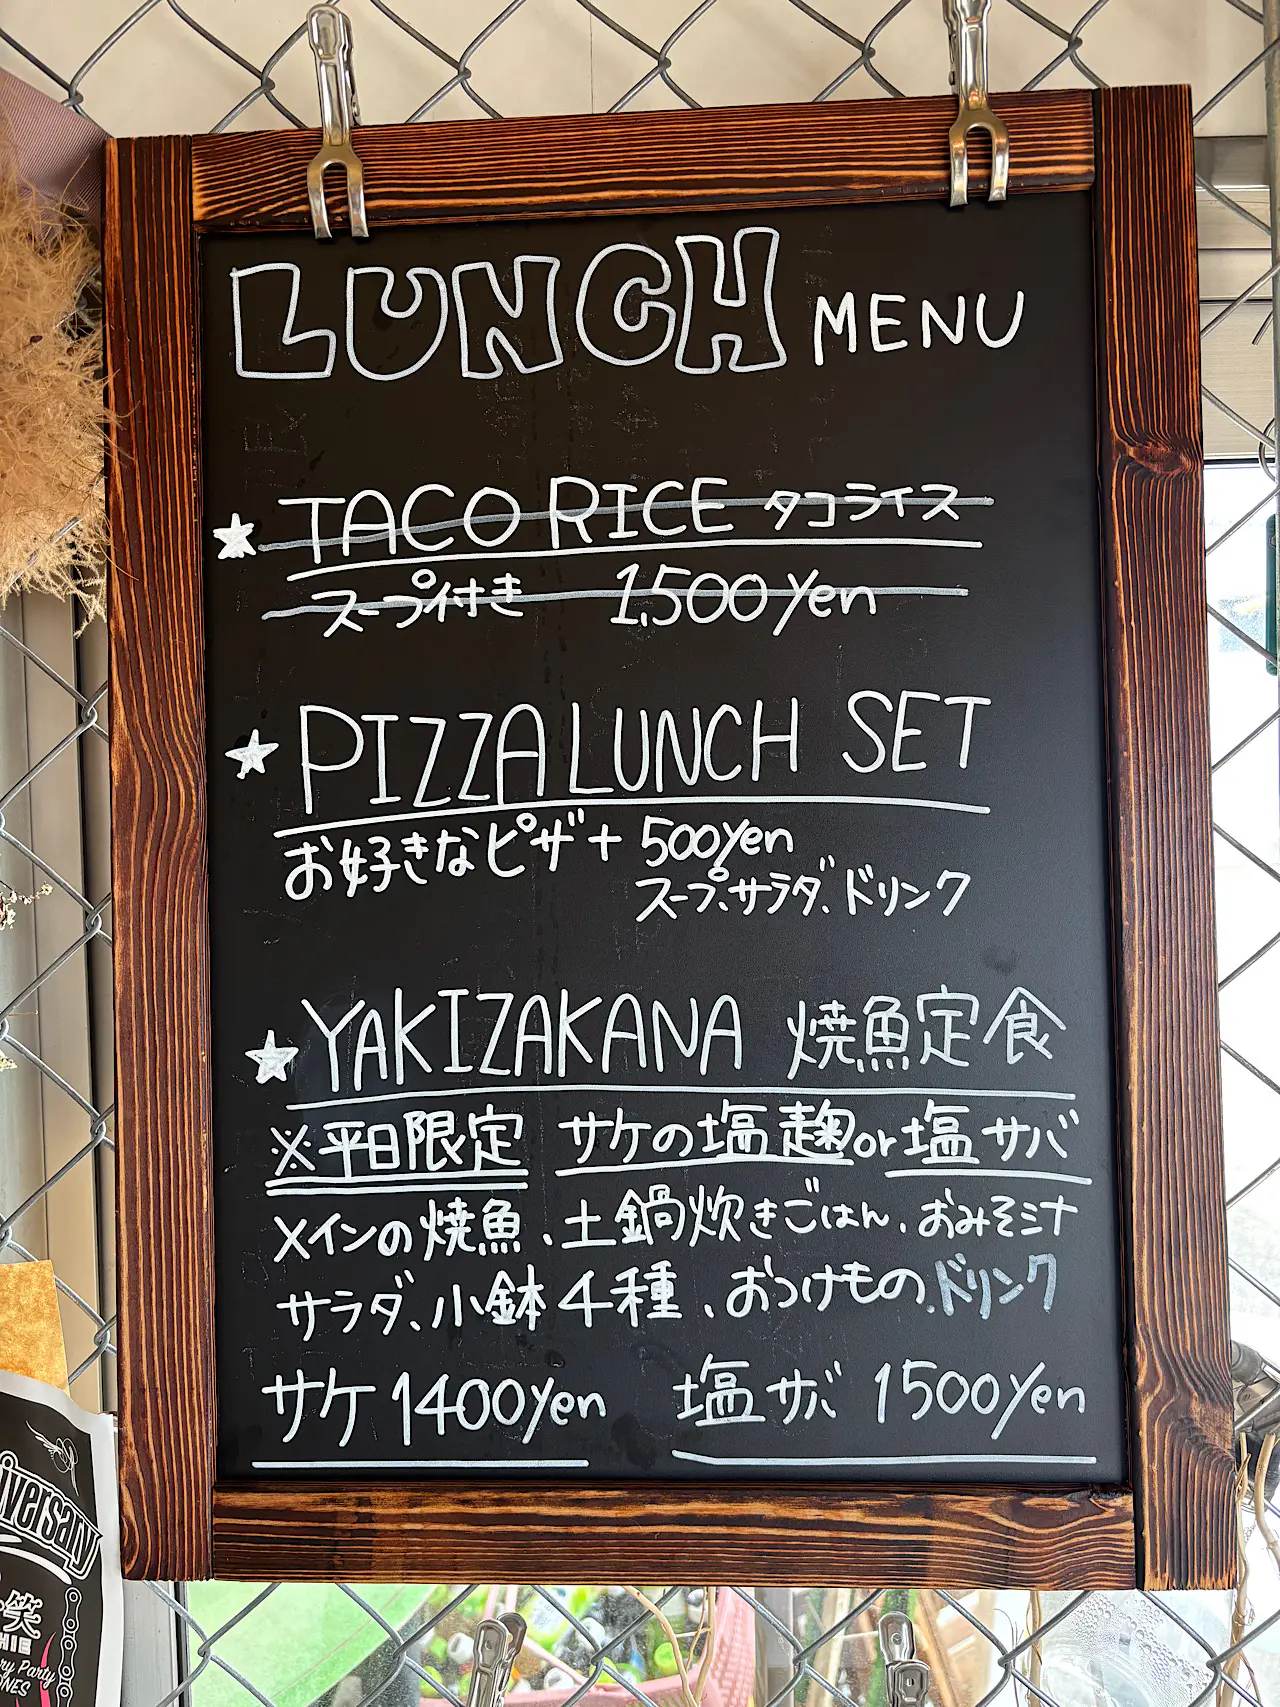 LUNCH MENU
★ TACO RICE タコライス
スープ付き 1,500yen
★ PIZZA LUNCH SET
お好きなピザ + 500yen
スープ、サラダ、ドリンク
★ YAKIZAKANA 焼魚定食
※平日限定 サケの塩麹or塩サバ
メインの焼魚、土鍋炊きごはん、おみそ汁
サラダ、小鉢4種、おつけもの、ドリンク
サケ 1400yen 塩サバ 1500yen
iversary
笑
HIE
ry Party
ONES